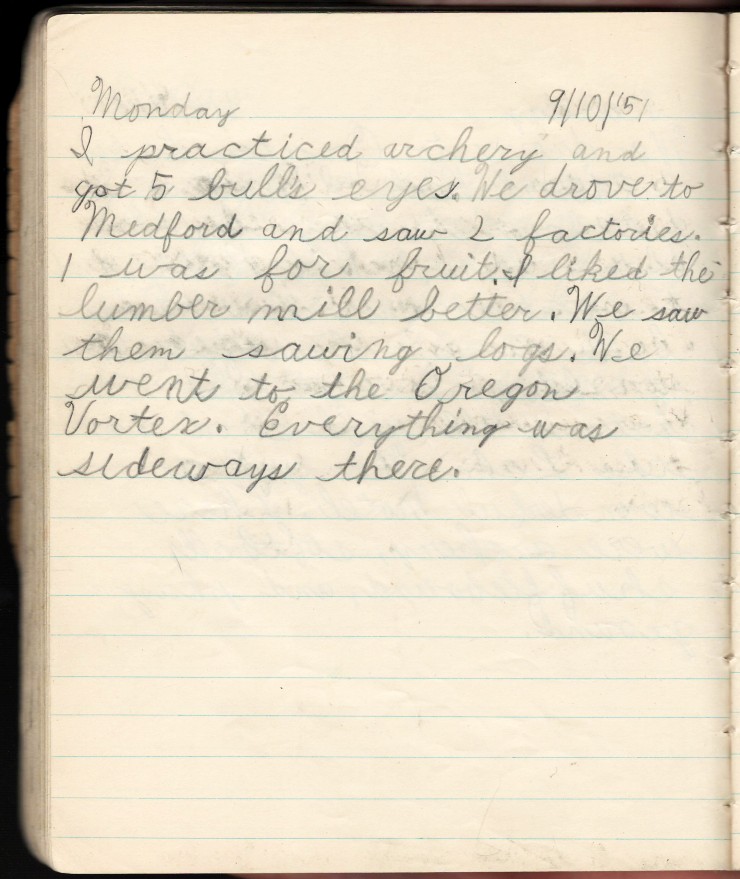 Monday 9/10/'51
I practiced archery and
got 5 bull's eyes. We drove to
Medford and saw 2 factories.
1 was for fruit. I liked the
lumber mill better. We saw
them sawing logs. We
went to the Oregon
Vortex. Everything was
sideways there.